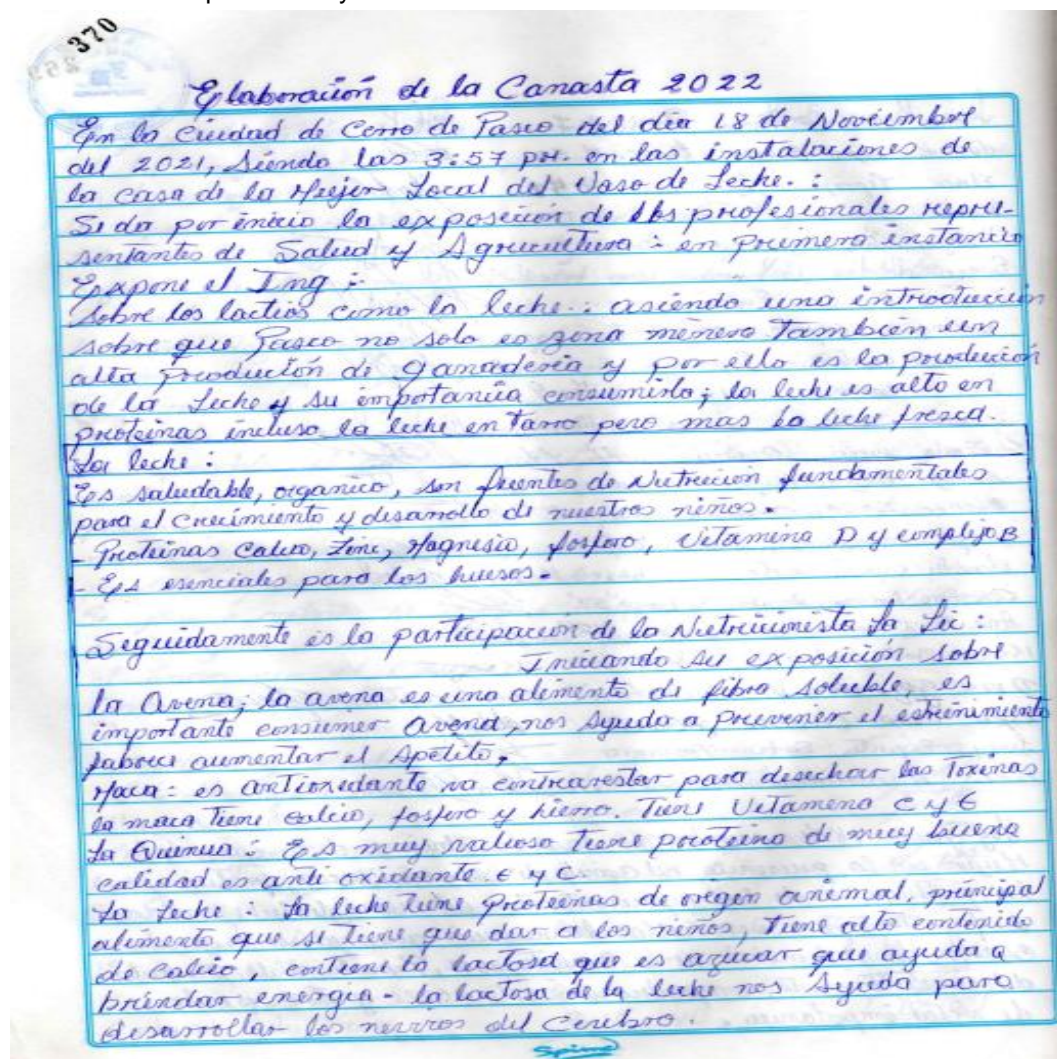 370
Elaboración de la Canasta 2022
En la ciudad de Cerro de Pasco del día 18 de Noviembre
del 2021, Siendo las 3:57 pm. en las instalaciones de
la casa de la Mujer Local del Vaso de Leche. :
Se da por inicio la exposición de los profesionales repre-
sentantes de Salud y Agricultura : en primera instancia
Expone el Ing :
Sobre los lacteos como la leche. : asiendo una introducción
sobre que Pasco no solo es zona minera También en
alta producion de ganaderia y por ello es la producción
de la Leche y su importancia consumirlo; la leche es alto en
proteinas incluso la leche en Tarro pero mas la leche fresca.
La leche :
Es saludable, organico, son fuentes de Nutricion fundamentales
para el crecimiento y desarrollo de nuestros niños.
- Proteinas Calcio, Zinc, Magnesio, fosforo, Vitamina D y complejo B
- Es esenciales para los huesos.
Seguidamente es la participacion de la Nutricionista La Lic :
Iniciando su exposición sobre
la Avena; la avena es una alimento de fibra soluble, es
importante consumir avena, nos Ayuda a prevenir el estreñimiento
aumentar el Apetito.
Maca : es antioxidante va contrarestar para desechar las Toxinas
la maca Tiene calcio, fosforo y hierro. Tiene Vitamena C y E
La Quinua : Es muy valioso Tiene proteina de muy buena
calidad es anti oxidante E y C
La Leche : La leche tiene Proteinas de origen animal, principal
alimento que se tiene que dar a los niños, Tiene alto contenido
de Calcio, contiene la lactosa que es azucar que ayuda a
brindar energia - la lactosa de la leche nos Ayuda para
desarrollar los nervios del Cerebro.
Spiral